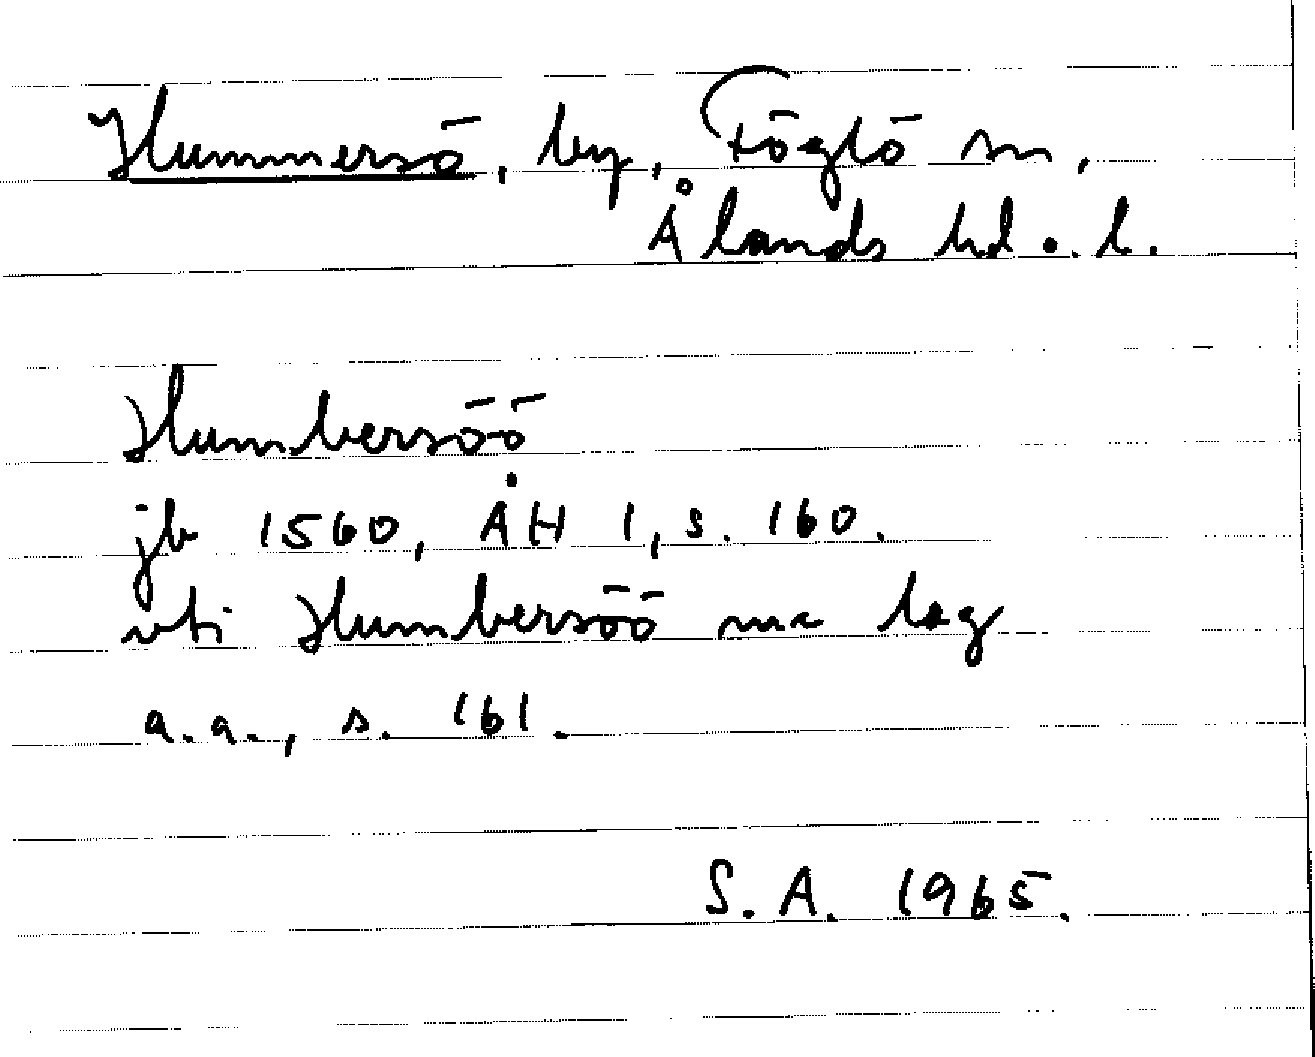 Hummersö, by, Föglö sn,
Ålands hd o. l.
Humbersöö
jb 1560, ÅH 1, s. 160.
vti Humbersöö lag
a.a., s. 161.
S. A. 1965.